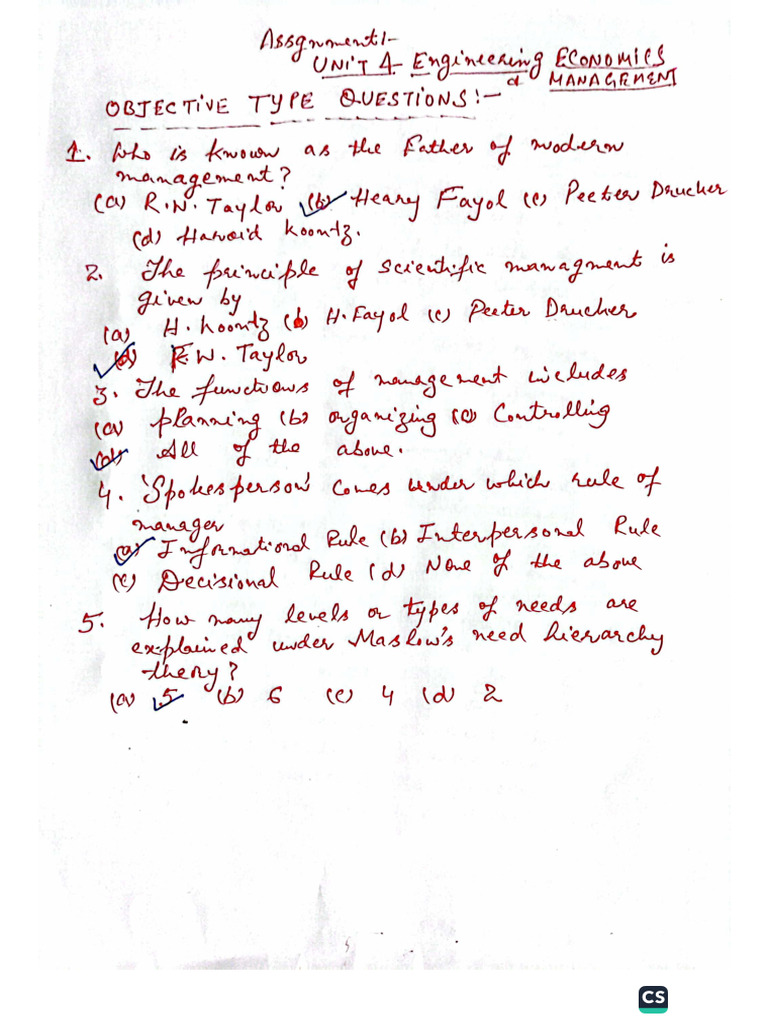 Assgnment1-
UNIT 4- Engineering ECONOMICS
& MANAGEMENT
OBJECTIVE TYPE QUESTIONS:-
1. Who is known as the Father of modern
management?
(a) R.N. Taylor (b) Heary Fayol (c) Peeter Drucher
(d) Haroid Koontz.
2. The principle of scientific managment is
given by
(a) H. Koontz (b) H. Fayol (c) Peeter Drucher
(d) F.W. Taylor
3. The functions of management includes
(a) planning (b) organizing (c) Controlling
(d) All of the above.
4. 'Spokesperson' comes under which rule of
manager
(a) Informational Rule (b) Interpersonal Rule
(c) Decisional Rule (d) None of the above
5. How many levels or types of needs are
explained under Maslow's need hierarchy
theory?
(a) 5 (b) 6 (c) 4 (d) 2
CS